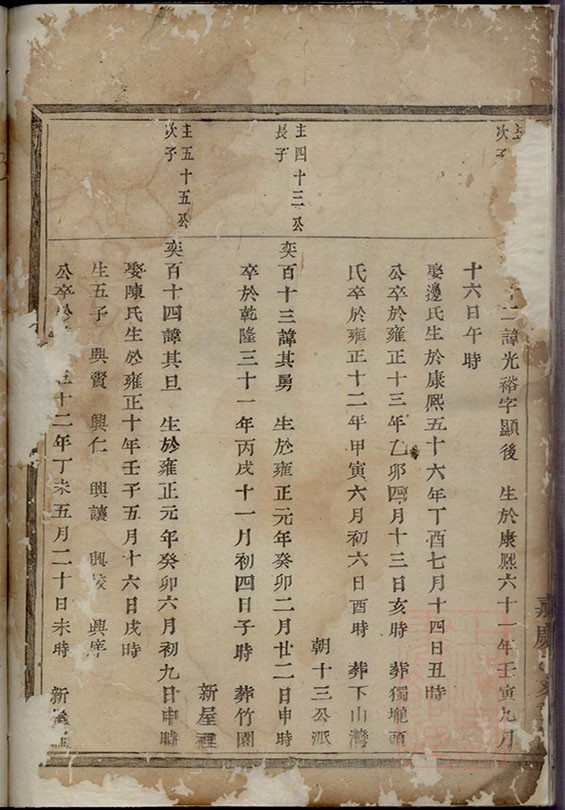 嘉慶
次子
十二諱光裕字顯後　生於康熙六十一年壬寅九月
十六日午時
娶邊氏生於康熙五十六年丁酉七月十四日丑時
公卒於雍正十三年乙卯四月十三日亥時　葬獨壠頭
氏卒於雍正十二年甲寅六月初六日酉時　葬下山灣
朝十三公派
主四十三公
長子
奕百十三諱其勇　生於雍正元年癸卯二月廿二日申時
卒於乾隆三十一年丙戌十一月初四日子時　葬竹園
新屋裡
主五十五公
次子
奕百十四諱其旦　生於雍正元年癸卯六月初九日申時
娶陳氏生於雍正十年壬子五月十六日戌時
生五子　興賢　興仁　興讓　興　興庠
公卒於　十二年丁未五月二十日未時　新